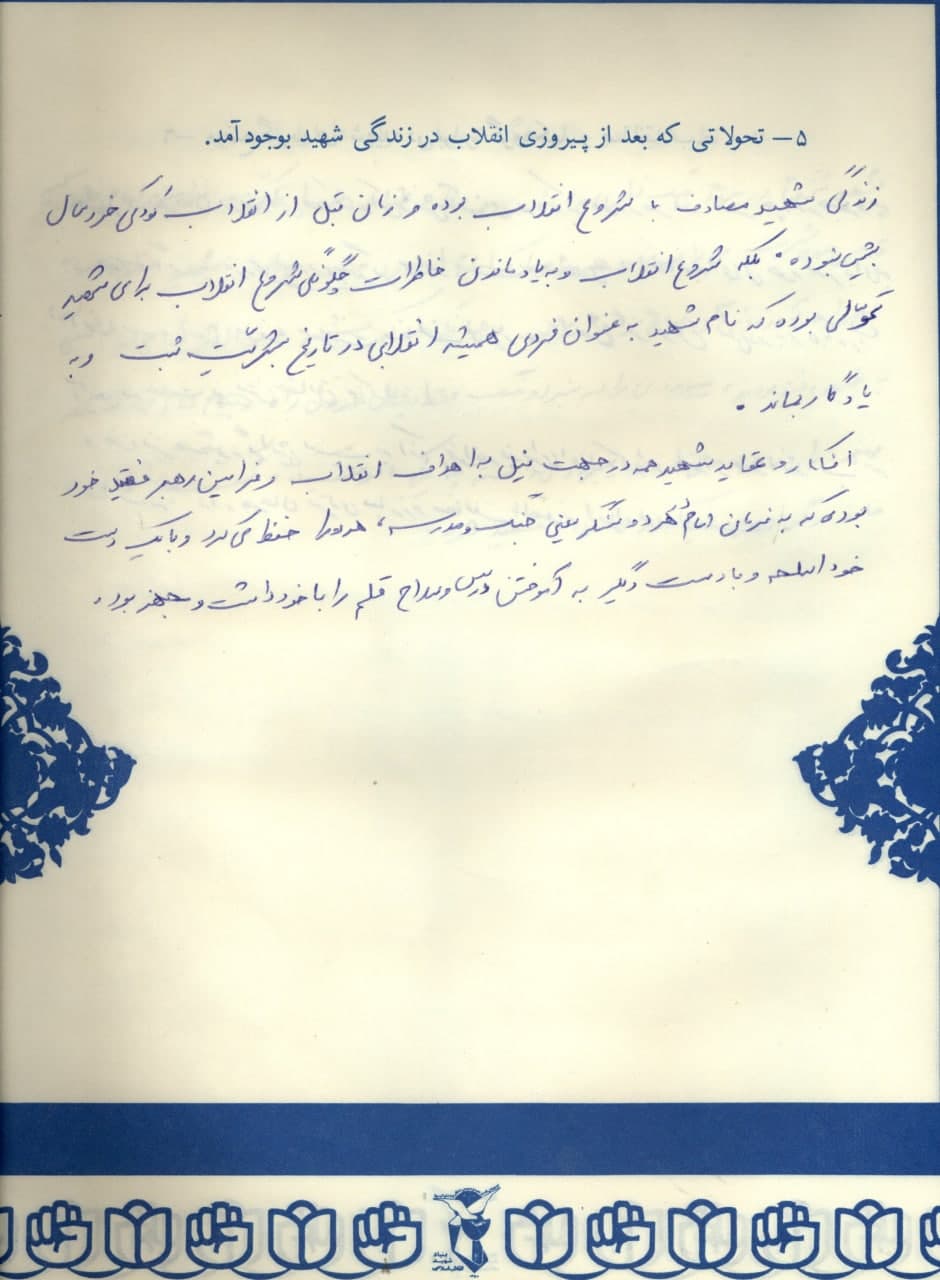 ۵ – تحولاتی که بعد از پیروزی انقلاب در زندگی شهید بوجود آمد.
زندگی شهید مصادف با شروع انقلاب بوده و زمان قبل از انقلاب کودکی خردسال
بیش نبوده. بلکه شروع انقلاب و به یاد ماندن خاطرات چگونگی شروع انقلاب برای شهید
تحولی بوده که نام شهید به عنوان فردی همیشه انقلابی در تاریخ بشریت ثبت و به
یادگار بماند.
افکار و عقاید شهید همه در جهت نیل به اهداف انقلاب و فرامین رهبر فقید خود
بوده که به فرمان امام هر دو سنگر یعنی جبهه و مدرسه، هر دو را حفظ می کرد و با یک دست
خود اسلحه و با دست دیگر به آموختن درس و سلاح قلم را با خود داشت و مجهز بود.
بنیاد
شهید
انقلاب اسلامی